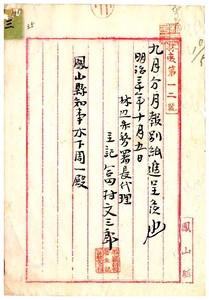 林邊第一二號
九月分月報別紙進呈候也
明治三十年十月五日
林辺弁務署長代理
主記 富村文三郎
鳳山縣知事木下周一殿
鳳山縣